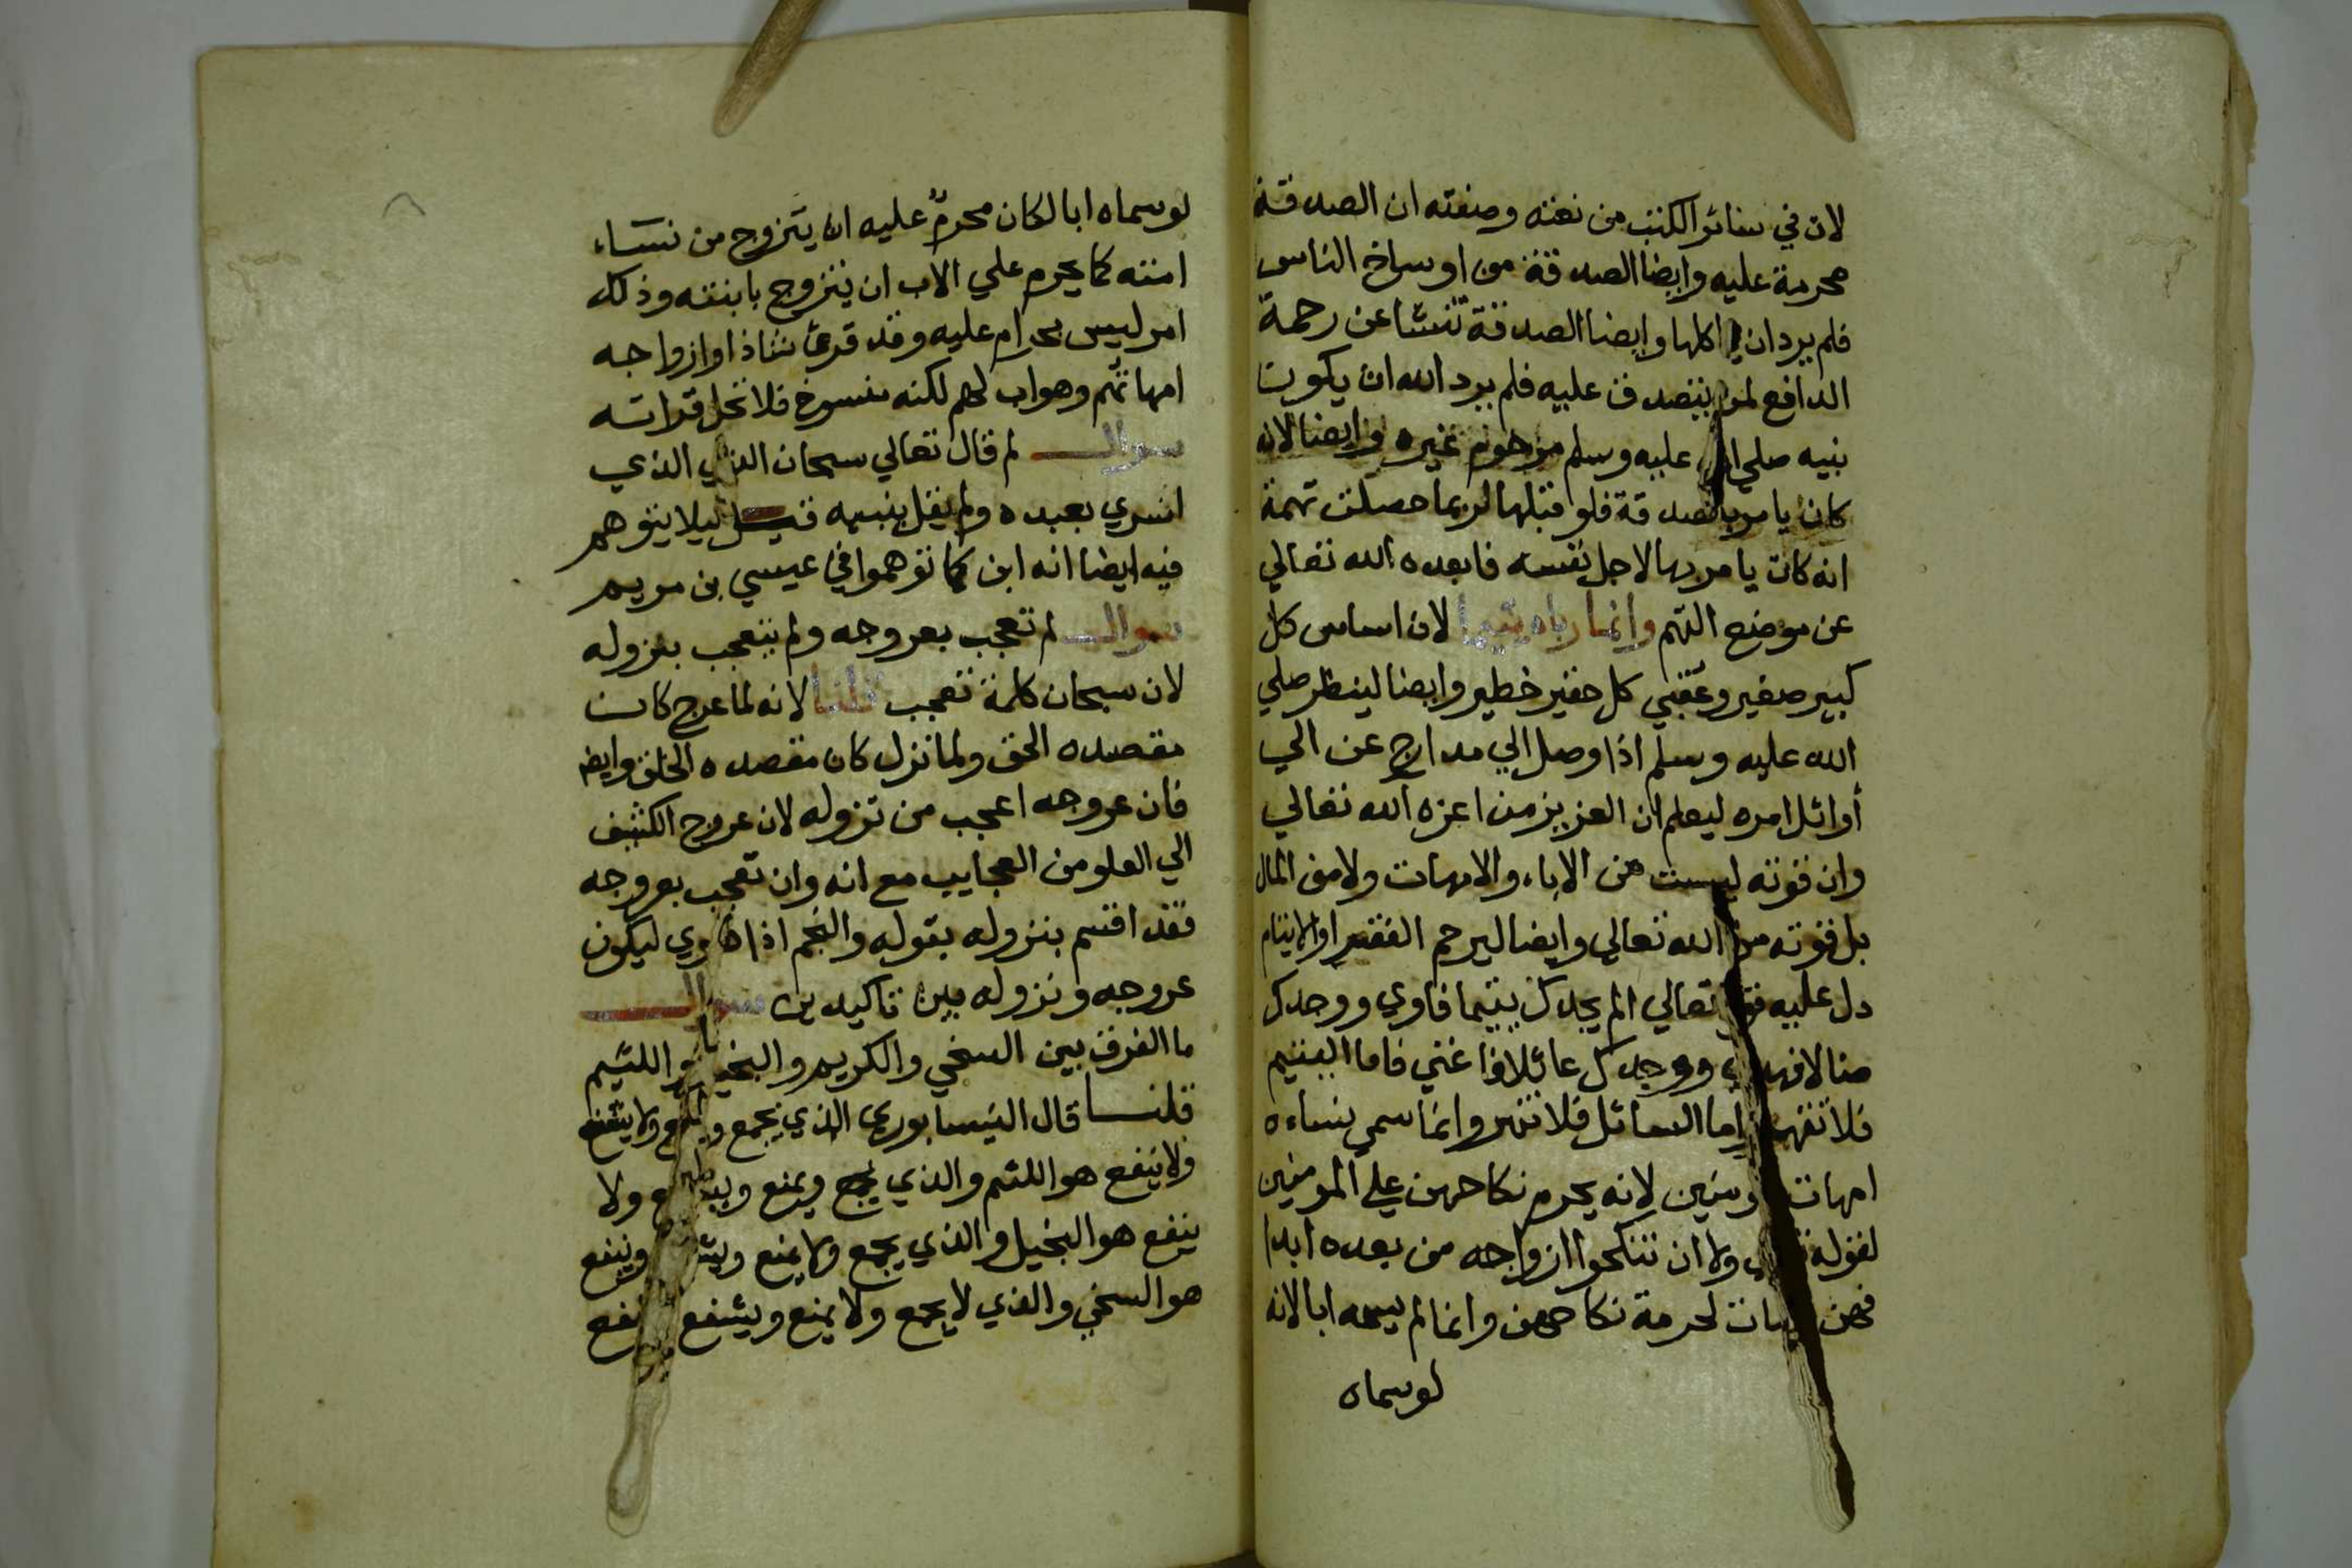 لان في سائر الكتب من نعته وصفته ان الصدقة
محرمة عليه وايضا الصدقة من اوساخ الناس
فلم يرد ان اكلها وايضا الصدقة تنشا عن رحمة
الدافع لمن يتصدق عليه فلم يرد الله ان يكون
نبيه صلي الله عليه وسلم مرحوم غيره وايضا لانه
كان يامر بالصدقة فلو قبلها لربما حصلت تهمة
انه كان يامر بها لاجل نفسه فابعده الله تعالي
عن موضع التهم وانما رباه يتيما لان اساس كل
كبير صغير وعقبي كل حقير خطير وايضا لينظر صلي
الله عليه وسلم اذا وصل الي مدارج عن الي
أوائل امره ليعلم ان العزيز من اعزه الله تعالي
وان قوته ليست من الاباء والامهات ولا من المال
بل قوته من الله تعالي وايضا ليرحم الفقير او الايتام
دل عليه تعالي الم يجدك يتيما فاوي ووجدك
ضالا فهدي ووجدك عائلا فاغني فاما اليتيم
فلا تقهر واما السائل فلا تنهر وانما سمي نساءه
امهات لانه يحرم نكاحهن علي المومنين
لقوله ولا ان تنكحوا ازواجه من بعده ابدا
فهن لحرمة نكاحهن وانما لم يسمه ابا لانه
لوسماه
لوسماه ابا لكان محرمٌ عليه ان يتزوج من نساء
امته كما يحرم علي الاب ان يتزوج بابنته وذلك
امر ليس بحرام عليه وقد قرئ شاذا وازواجه
امهاتهم وهو اب لهم لكنه منسوخ فلا تحل قراته
سوال لم قال تعالي سبحان الذي الذي
اسري بعبده ولم يقل بنبيه قيل ليلا يتوهم
فيه ايضا انه ابن كما توهموا في عيسي بن مريم
سوال لم تعجب بعروجه ولم يتعجب بنزوله
لان سبحان كلمة تعجب قلنا لانه لما عرج كان
مقصده الحق ولما نزل كان مقصده الخلق وايض
فان عروجه اعجب من نزوله لان عروج الكثيف
الي العلو من العجايب مع انه وان تعجب بعروجه
فقد اقسم بنزوله بقوله والنجم اذا هوي ليكون
عروجه ونزوله بين تاكيدين سوال
ما الفرق بين السخي والكريم والبخيل واللئيم
قلنا قال النيسابوري الذي يجمع ولا ينتفع
ولا ينفع هو اللئيم والذي يجمع ويمنع ولا
ينفع هو البخيل والذي يجمع ولا يمنع وينفع
هو السخي والذي لا يجمع ولا يمنع وينتفع